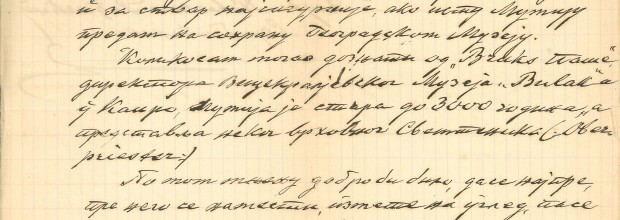 и за ствар најсигурније, ако исту Мумију
предат на сохрану београдском Музеју.
Колико сам могао дознати од „Bruks паше“,
директора Вицекраљевског Музеја „Bulak“а
у Каиро, Мумија је стара до 3000 година, а
представља неког врховног Свештеника (:Ober-
priester:)
По том питању добро би било да се најпре,
пре него се намести, изнесе на углед, па се